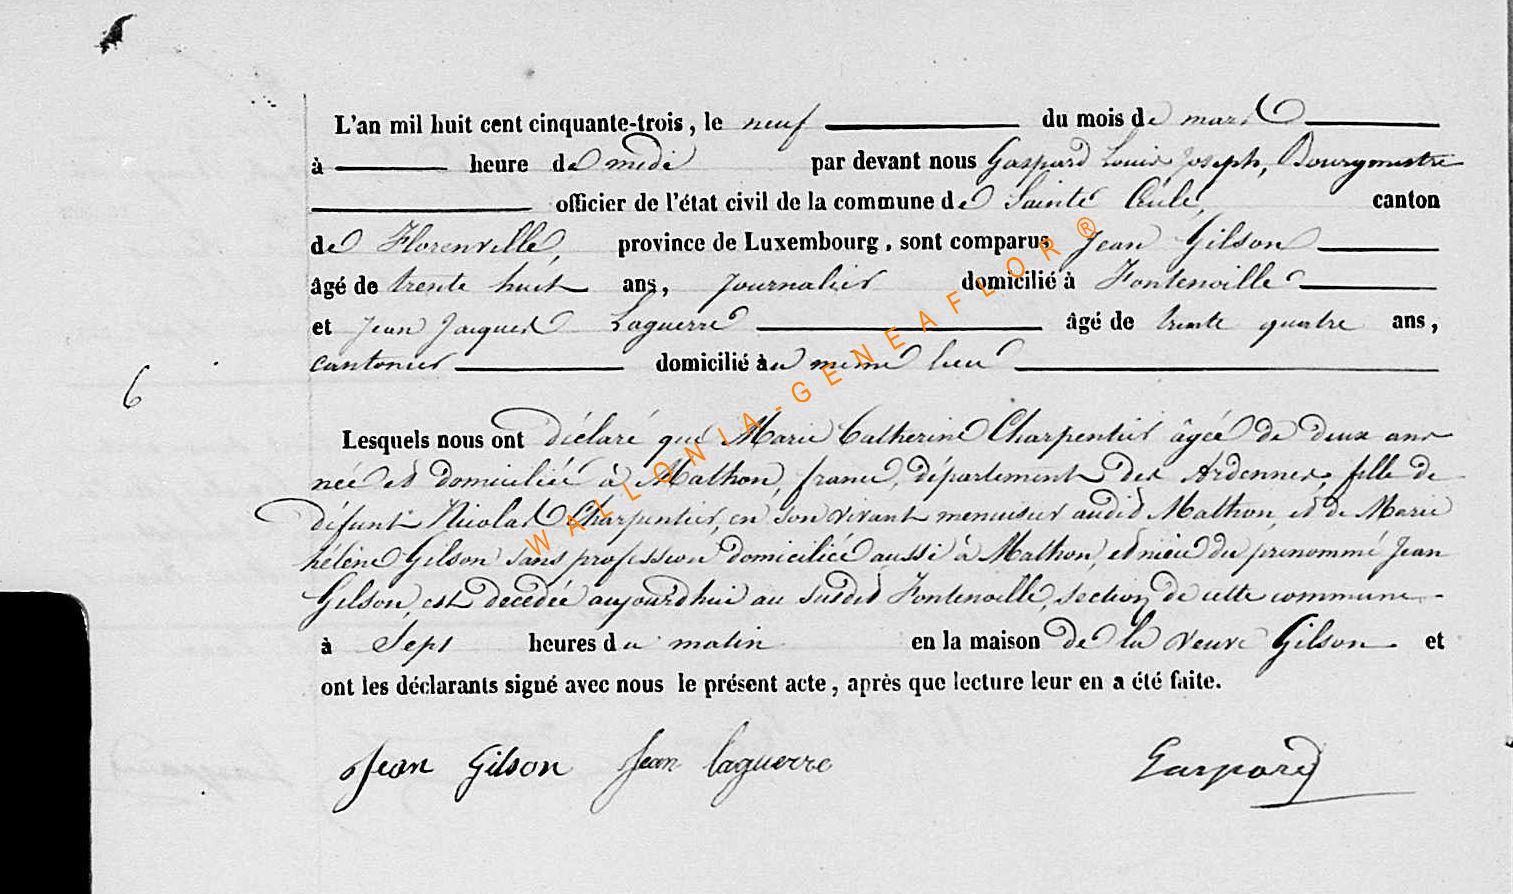 L'an mil huit cent cinquante-trois, le neuf du mois de mars
à heure de midi par devant nous Gaspard Louis Joseph, Bourgmestre
officier de l'état civil de la commune de Sainte Cécile, canton
de Florenville, province de Luxembourg, sont comparus Jean Gilson
âgé de trente huit ans, Journalier domicilié à Fontenoille
et Jean Jacques Laguerre âgé de trente quatre ans,
cantonier domicilié au même lieu
6
Lesquels nous ont déclaré que Marie Catherine Charpentier âgée de deux ans
née et domiciliée à Mathon, france, département des Ardennes, fille de
défunt Nicolas Charpentier, en son vivant menuisier audit Mathon, et de Marie
hélène Gilson sans profession domiciliée aussi à Mathon, et nièce du prénommé Jean
Gilson, est décédée aujourdhui au susdit Fontenoille, section de cette commune
à Sept heures du matin en la maison de la veuve Gilson et
ont les déclarants signé avec nous le présent acte, après que lecture leur en a été faite.
Jean Gilson Jean laguerre Gaspard
WALLONIA-GENEAFLOR®